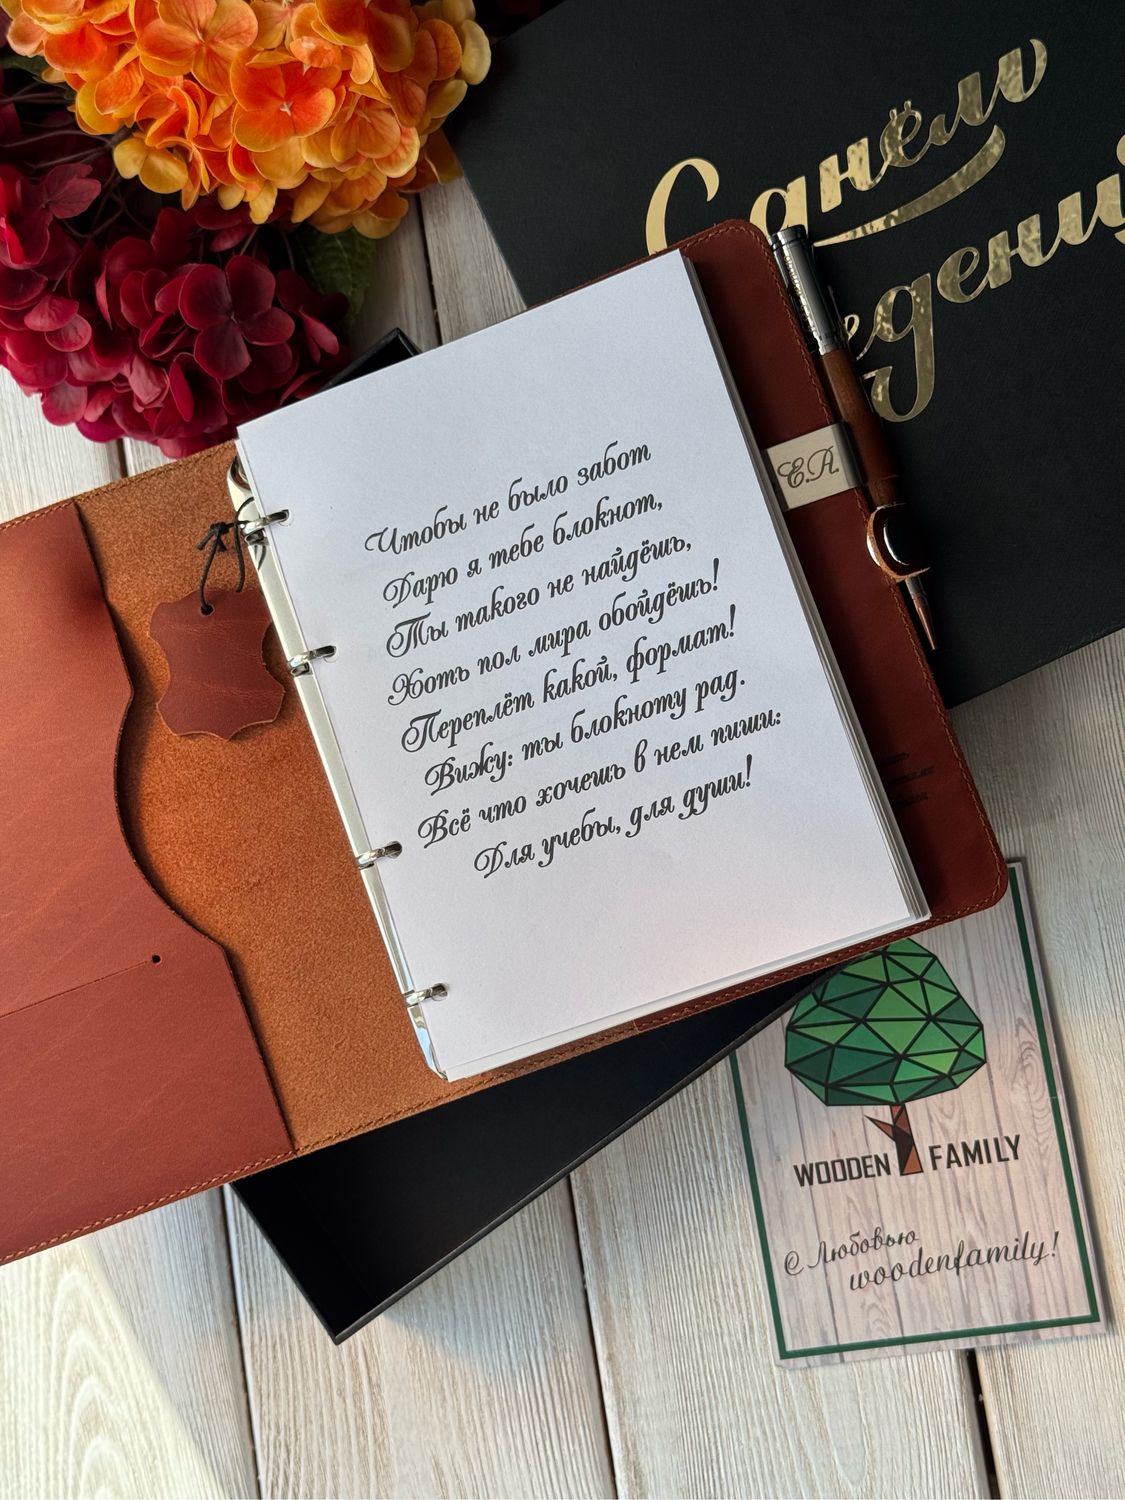 С днём
Чтобы не было забот
Дарю я тебе блокнот,
Ты такого не найдёшь,
Хоть пол мира обойдёшь!
Переплёт какой, формат!
Вижу: ты блокноту рад.
Всё что хочешь в нем пиши:
Для учебы, для души!
Е.А.
WOODEN FAMILY
С Любовью
woodenfamily!